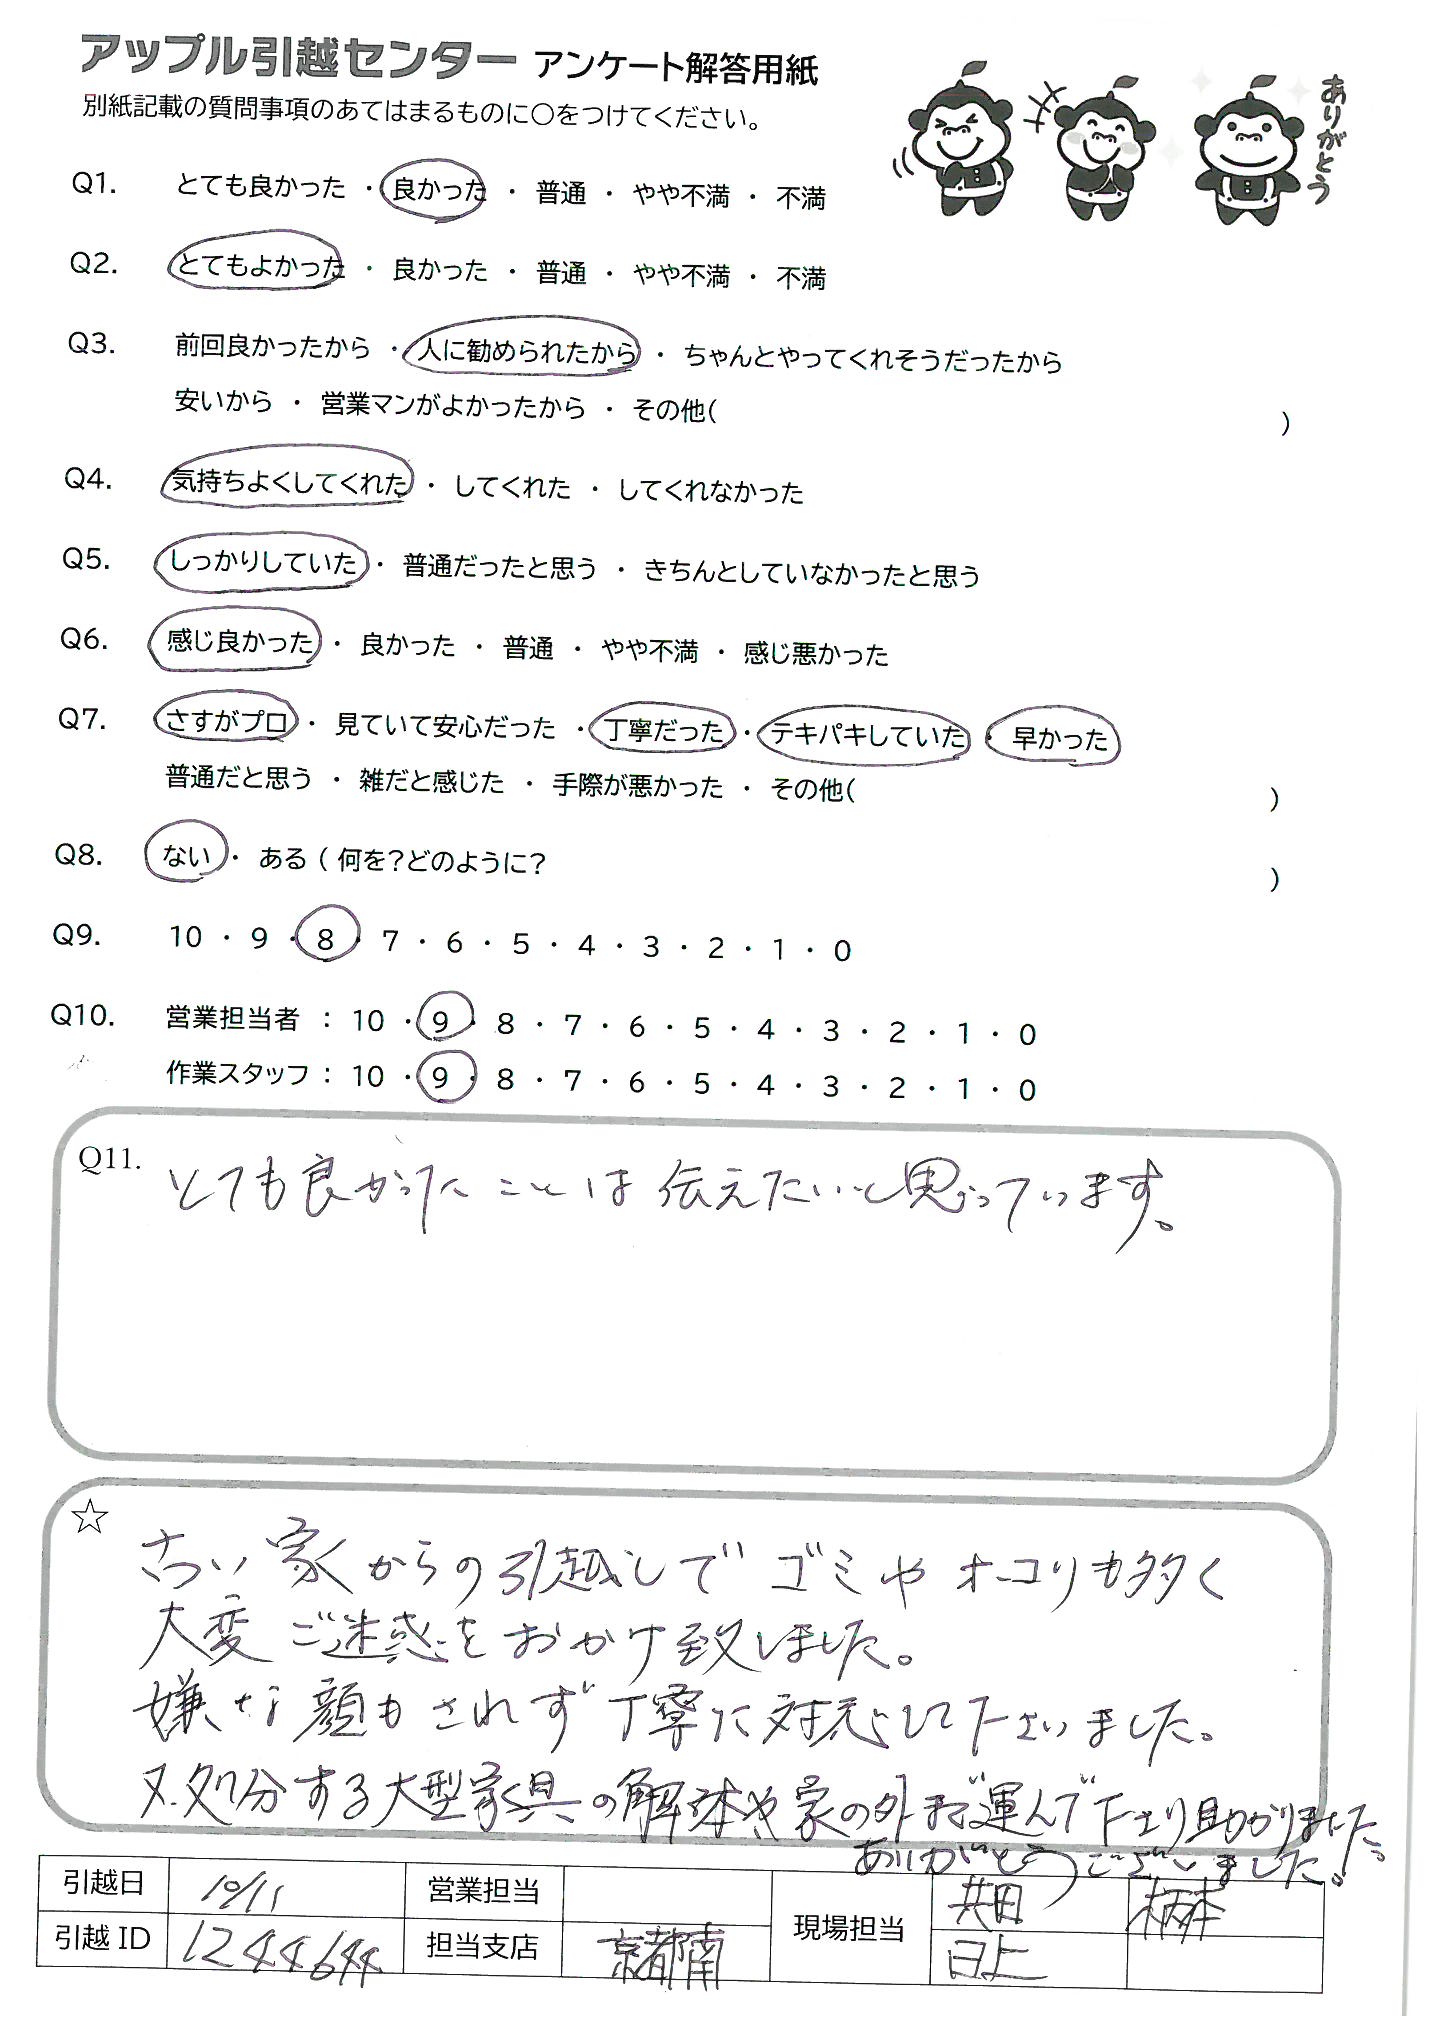 アップル引越センター アンケート解答用紙
別紙記載の質問事項のあてはまるものに〇をつけてください。
ありがとう
Q1. とても良かった ・ 良かった ・ 普通 ・ やや不満 ・ 不満
Q2. とてもよかった ・ 良かった ・ 普通 ・ やや不満 ・ 不満
Q3. 前回良かったから ・ 人に勧められたから ・ ちゃんとやってくれそうだったから
安いから ・ 営業マンがよかったから ・ その他( )
Q4. 気持ちよくしてくれた ・ してくれた ・ してくれなかった
Q5. しっかりしていた ・ 普通だったと思う ・ きちんとしていなかったと思う
Q6. 感じ良かった ・ 良かった ・ 普通 ・ やや不満 ・ 感じ悪かった
Q7. さすがプロ ・ 見ていて安心だった ・ 丁寧だった ・ テキパキしていた ・ 早かった
普通だと思う ・ 雑だと感じた ・ 手際が悪かった ・ その他( )
Q8. ない ・ ある ( 何を?どのように? )
Q9. 10 ・ 9 ・ 8 ・ 7 ・ 6 ・ 5 ・ 4 ・ 3 ・ 2 ・ 1 ・ 0
Q10. 営業担当者 : 10 ・ 9 ・ 8 ・ 7 ・ 6 ・ 5 ・ 4 ・ 3 ・ 2 ・ 1 ・ 0
作業スタッフ : 10 ・ 9 ・ 8 ・ 7 ・ 6 ・ 5 ・ 4 ・ 3 ・ 2 ・ 1 ・ 0
Q11. とても良かったことは伝えたいと思っています。
☆
古い家からの引越しでゴミやホコリも多く
大変ご迷惑をおかけ致しました。
嫌な顔もされず丁寧に対応して下さいました。
又、処分する大型家具の解体や家の外まで運んで下さり助かりました。
ありがとうございました。
引越日 10/11 営業担当 現場担当 共田 柄本
引越 ID 1244644 担当支店 京都南 日上